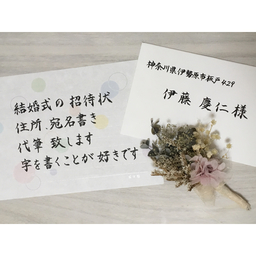 結婚式の招待状
住所、宛名書き
代筆致します
字を書くことが好きです
神奈川県伊勢原市板戸429
伊藤慶仁様